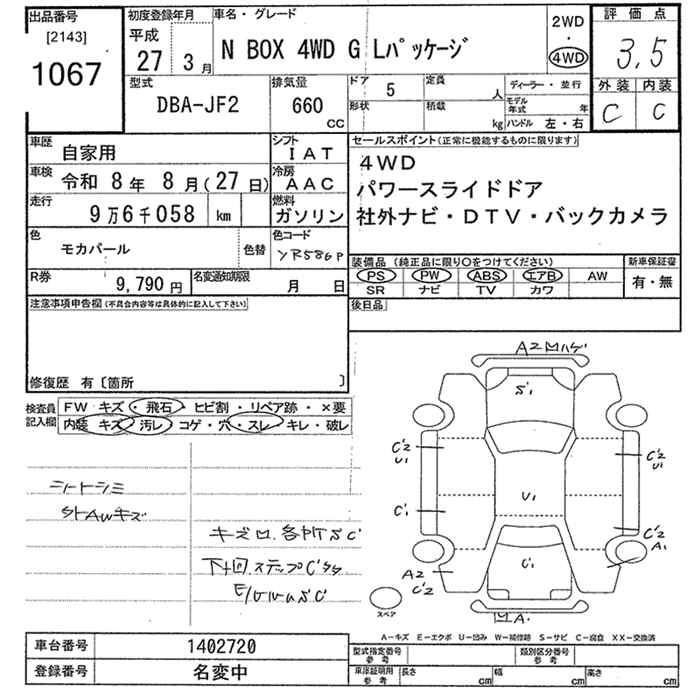 出品番号
[2143]
1067
初度登録年月
平成
27 3月
車名・グレード
N BOX 4WD G Lパッケージ
2WD
・
4WD
評価点
3.5
外装 内装
C C
型式
DBA-JF2
排気量
660
CC
ドア 5
形状
定員 人
積載 kg
ディーラー・並行
モデル年式 年
ハンドル 左・右
車歴
自家用
シフト
IAT
車検
令和 8年 8月(27日)
冷房
AAC
走行
9万6千058 km
燃料
ガソリン
色
モカパール
色替
色コード
YR586P
R券
9,790円
名変通知期限
月 日
セールスポイント(正常に機能するものに限ります)
4WD
パワースライドドア
社外ナビ・DTV・バックカメラ
装備品(純正品に限り○をつけてください)
PS PW ABS エアB AW
SR ナビ TV カワ
新車保証書
有・無
注意事項申告欄(不具合内容等は具体的に記入して下さい)
後日品
修復歴 有〔箇所 〕
検査員記入欄
FW キズ・飛石・ヒビ割・リペア跡・×要
内装 キズ・汚レ・コゲ・穴・スレ・キレ・破レ
シートシミ
キズ凹、各所SC
下回、ステップC
A2
S1
C2
U1
C2
U1
C1
U1
C2
A1
C1
A2
C2
A
スペア
A−キズ E−エクボ U−凹み W−補修跡 S−サビ C−腐食 XX−交換済
車台番号
1402720
登録番号
名変中
型式指定番号
参考
類別区分番号
参考
車庫証明用
参考
長さ cm
幅 cm
高さ cm